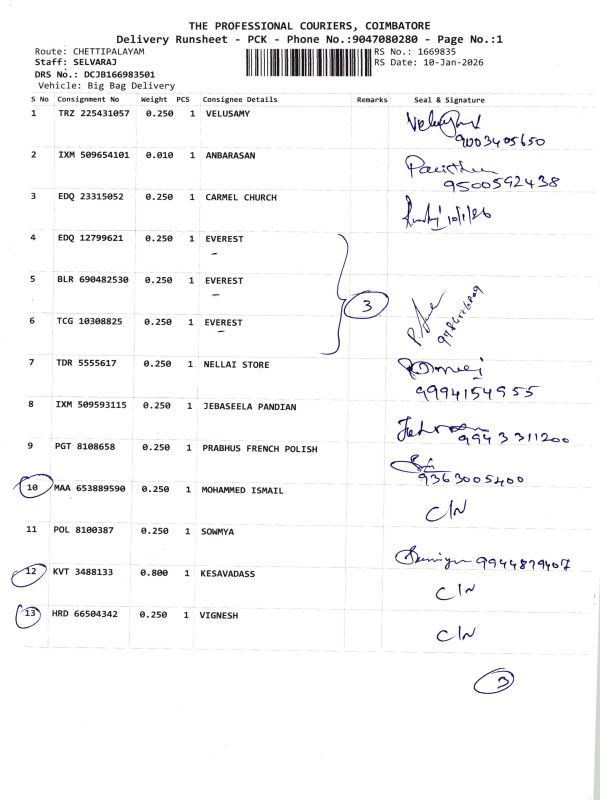 THE PROFESSIONAL COURIERS, COIMBATORE
Delivery Runsheet - PCK - Phone No.:9047080280 - Page No.:1
Route: CHETTIPALAYAM RS No.: 1669835
Staff: SELVARAJ RS Date: 10-Jan-2026
DRS No.: DCJB166983501
Vehicle: Big Bag Delivery
S No Consignment No Weight PCS Consignee Details Remarks Seal & Signature
1 TRZ 225431057 0.250 1 VELUSAMY
9003405650
2 IXM 509654101 0.010 1 ANBARASAN
9500592438
3 EDQ 23315052 0.250 1 CARMEL CHURCH 10/1/26
4 EDQ 12799621 0.250 1 EVEREST
5 BLR 690482530 0.250 1 EVEREST
3
6 TCG 10308825 0.250 1 EVEREST
7 TDR 5555617 0.250 1 NELLAI STORE
9994154955
8 IXM 509593115 0.250 1 JEBASEELA PANDIAN
9943311200
9 PGT 8108658 0.250 1 PRABHUS FRENCH POLISH
9363005400
10 MAA 653889590 0.250 1 MOHAMMED ISMAIL
C/N
11 POL 8100387 0.250 1 SOWMYA
9944879407
12 KVT 3488133 0.800 1 KESAVADASS
C/N
13 HRD 66504342 0.250 1 VIGNESH
C/N
3